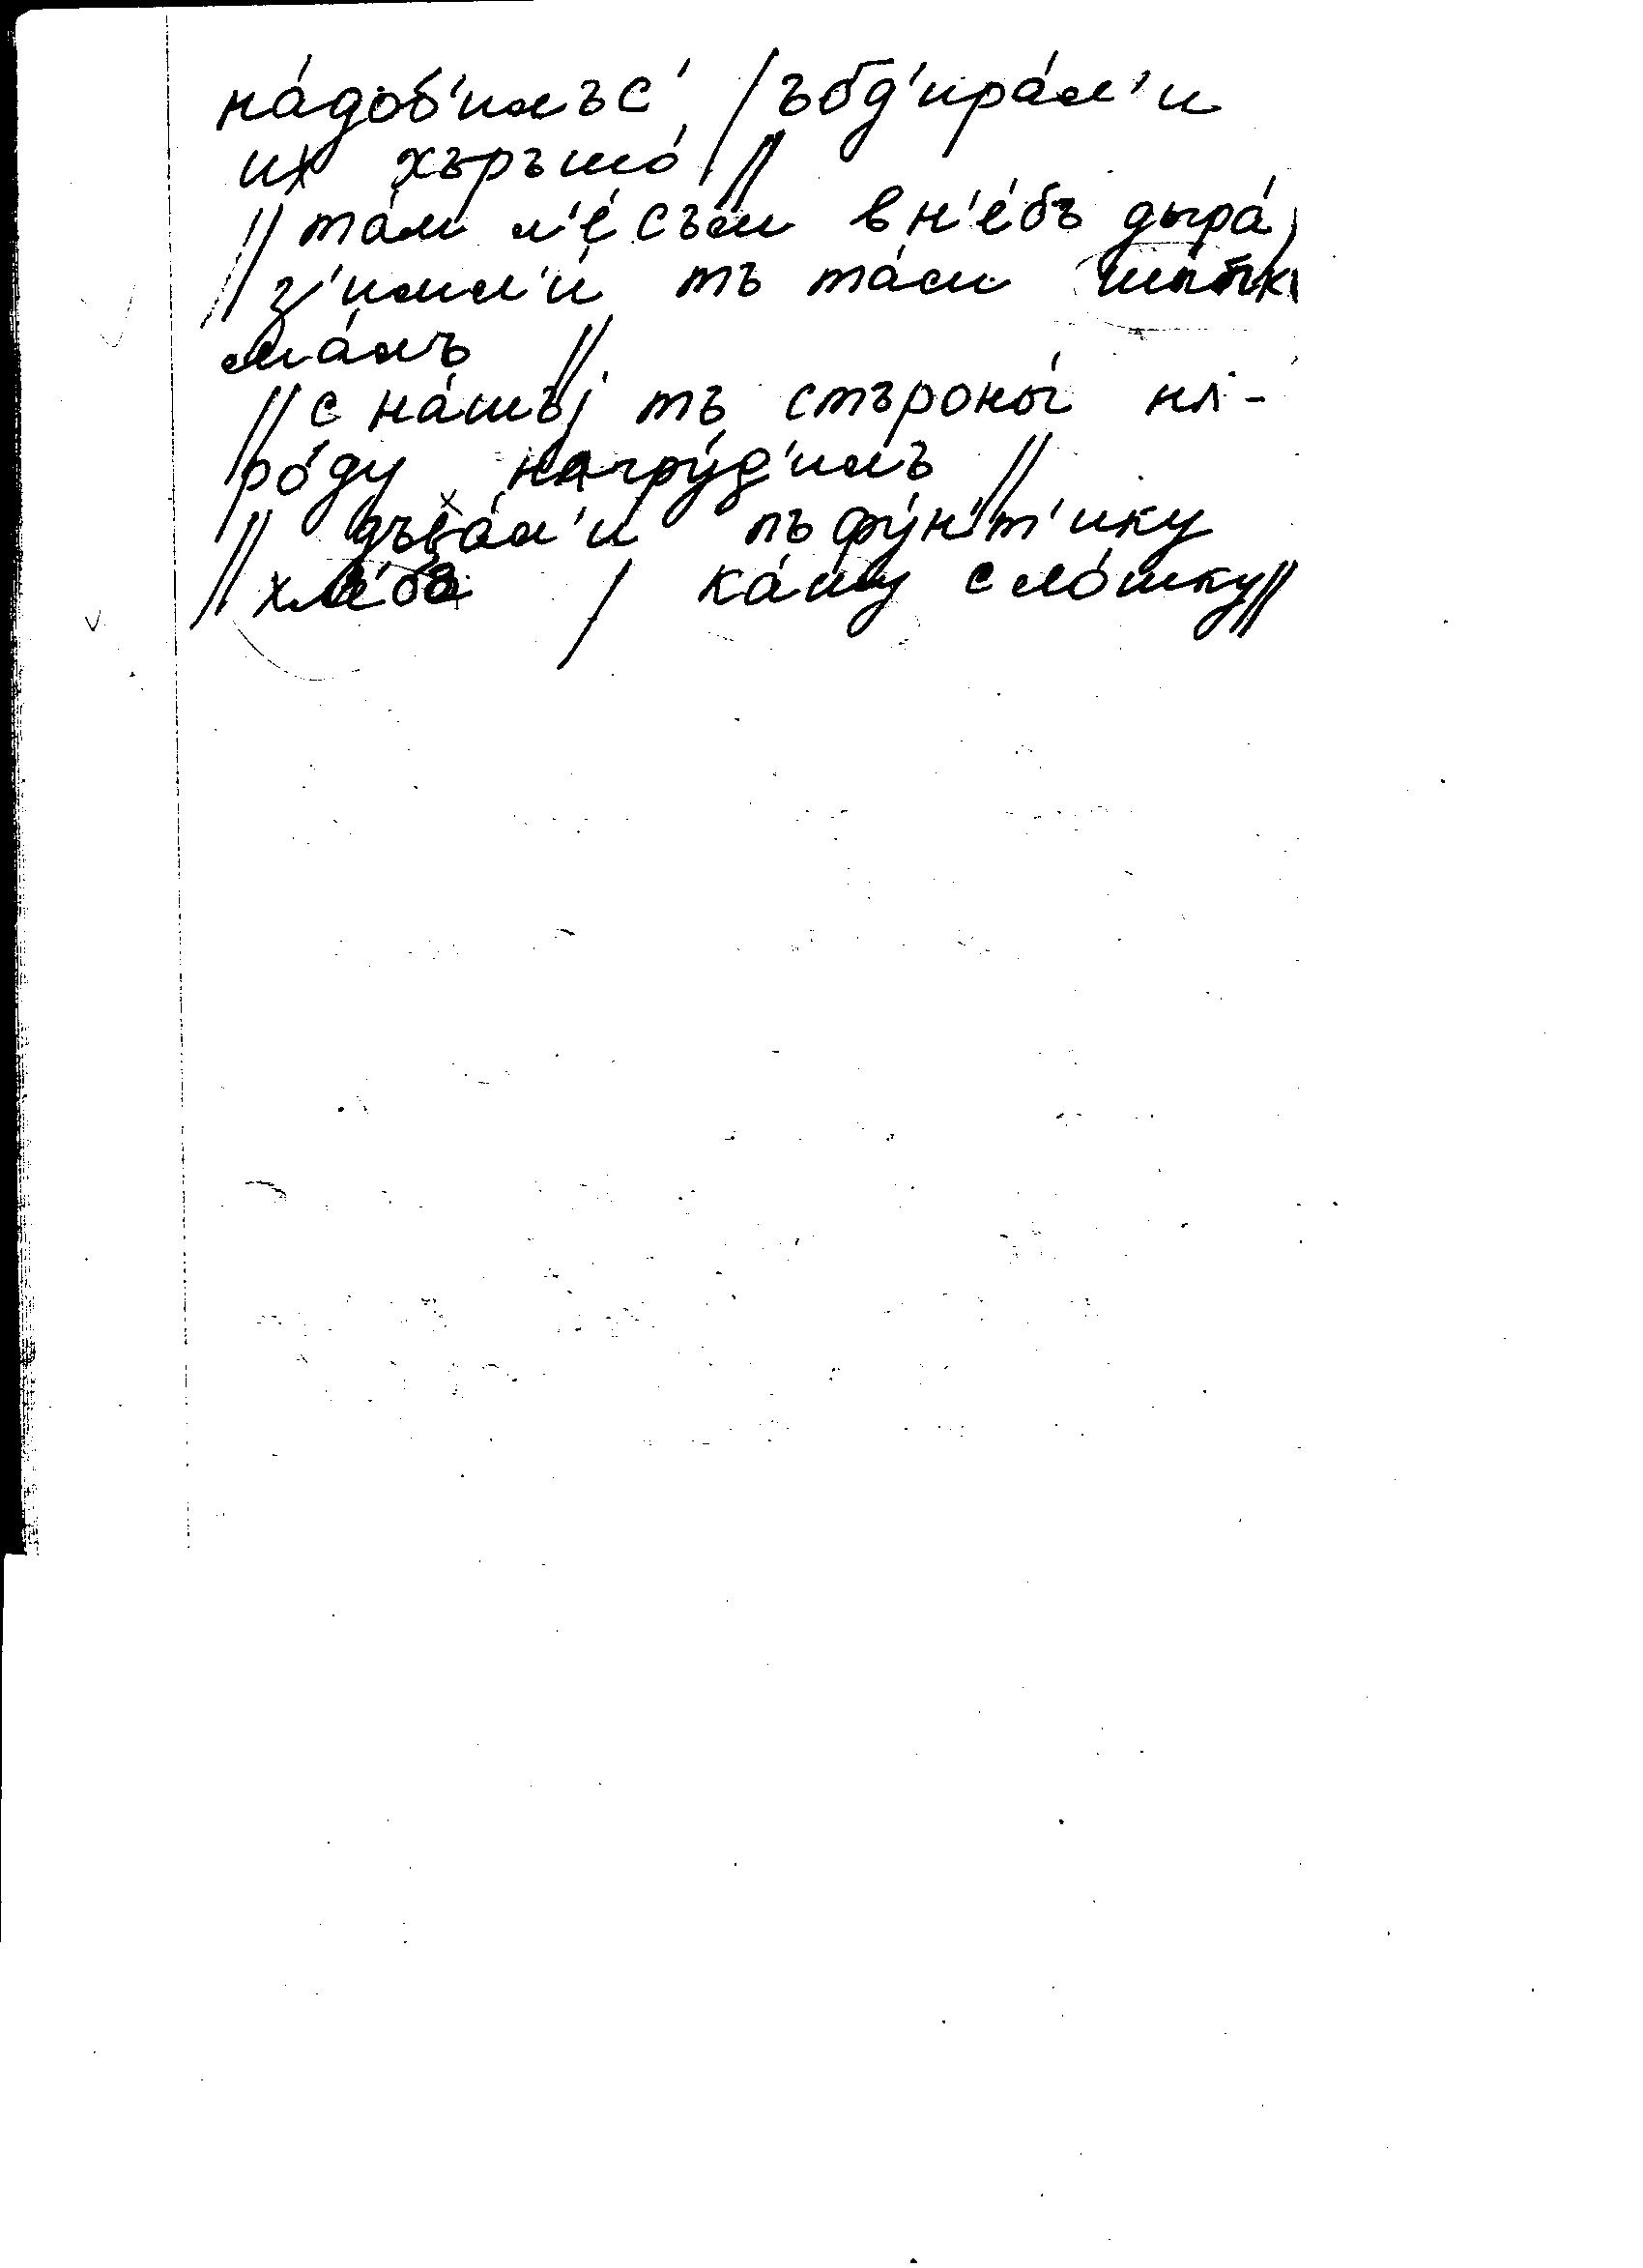 на́доб'илъс' / ъбд'ира́л'и
их хъръшо́ //
// та́м л'е́съм в н'е́бъ дыра́,
// з'имл'и́ тъ та́м
ма́лъ //
// с на́шъј тъ стъроны́ нʌ-
ро́ду нагру́д'илъ //
// дъва́л'и пъ фу́н'т'ику
// хл'е́ба / ка́шу с ло́шку //